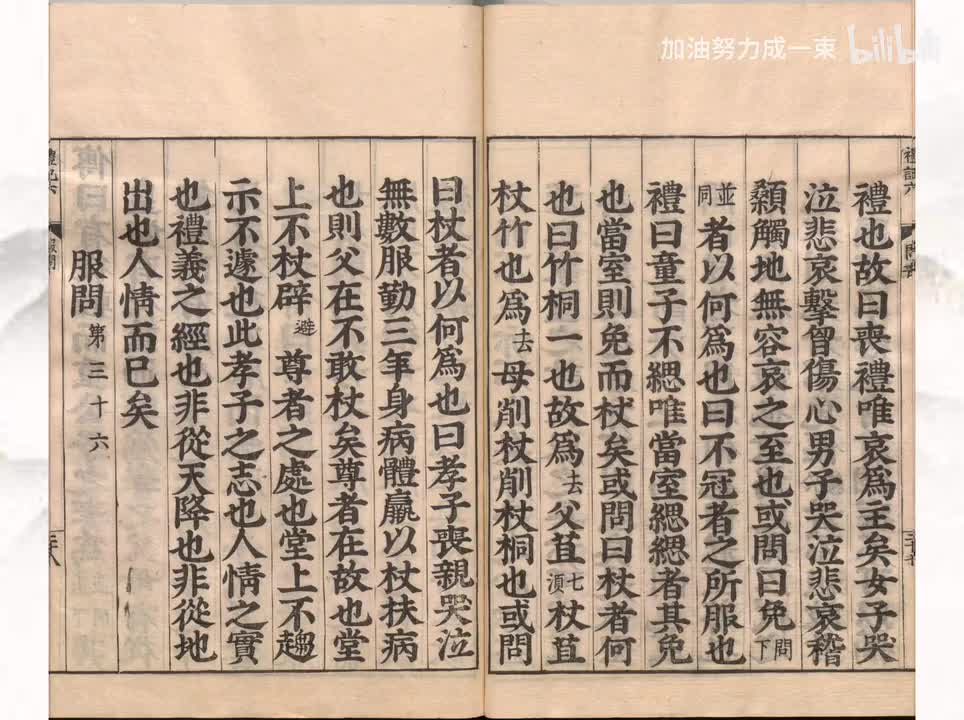 加油努力成一束 bilibili
禮也故曰喪禮唯哀爲主矣女子哭
泣悲哀擊胷傷心男子哭泣悲哀稽
顙觸地無容哀之至也或問曰免問下
並同者以何爲也曰不冠者之所服也
禮曰童子不緦唯當室緦緦者其免
也當室則免而杖矣或問曰杖者何
也曰竹桐一也故爲去父苴七須杖苴
杖竹也爲去母削杖削杖桐也或問
曰杖者以何爲也曰孝子喪親哭泣
無數服勤三年身病體羸以杖扶病
也則父在不敢杖矣尊者在故也堂
上不杖辟避尊者之處也堂上不趨
示不遽也此孝子之志也人情之實
也禮義之經也非從天降也非從地
出也人情而已矣
服問第三十六